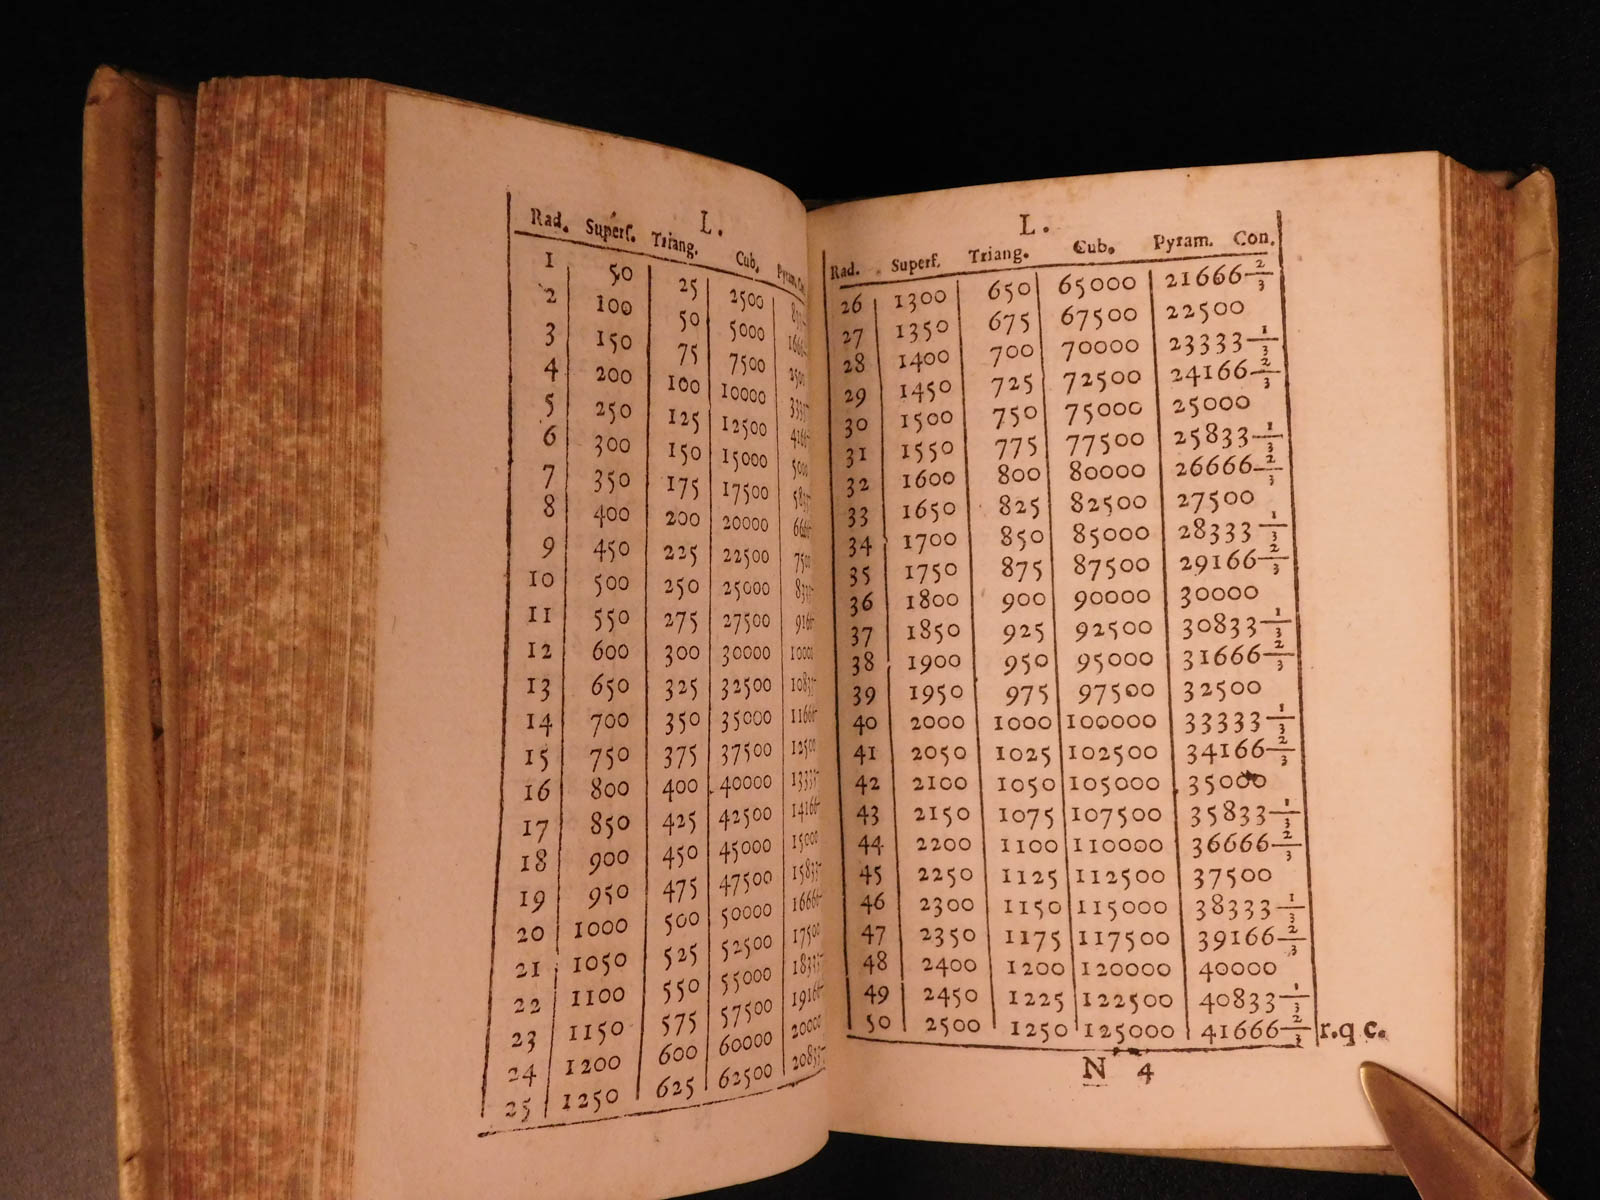 L.
Rad. Superſ. Triang. Cub. Pyram. Con.
1 50 25 2500
2 100 50 5000
3 150 75 7500 2500
4 200 100 10000
5 250 125 12500
6 300 150 15000 5000
7 350 175 17500
8 400 200 20000
9 450 225 22500 7500
10 500 250 25000
11 550 275 27500
12 600 300 30000 10000
13 650 325 32500
14 700 350 35000
15 750 375 37500 12500
16 800 400 40000
17 850 425 42500
18 900 450 45000 15000
19 950 475 47500
20 1000 500 50000
21 1050 525 52500 17500
22 1100 550 55000
23 1150 575 57500
24 1200 600 60000 20000
25 1250 625 62500
L.
Rad. Superſ. Triang. Cub. Pyram. Con.
26 1300 650 65000 21666 2/3
27 1350 675 67500 22500
28 1400 700 70000 23333 1/3
29 1450 725 72500 24166 2/3
30 1500 750 75000 25000
31 1550 775 77500 25833 1/3
32 1600 800 80000 26666 2/3
33 1650 825 82500 27500
34 1700 850 85000 28333 1/3
35 1750 875 87500 29166 2/3
36 1800 900 90000 30000
37 1850 925 92500 30833 1/3
38 1900 950 95000 31666 2/3
39 1950 975 97500 32500
40 2000 1000 100000 33333 1/3
41 2050 1025 102500 34166 2/3
42 2100 1050 105000 35000
43 2150 1075 107500 35833 1/3
44 2200 1100 110000 36666 2/3
45 2250 1125 112500 37500
46 2300 1150 115000 38333 1/3
47 2350 1175 117500 39166 2/3
48 2400 1200 120000 40000
49 2450 1225 122500 40833 1/3
50 2500 1250 125000 41666 2/3 r.q c.
N 4